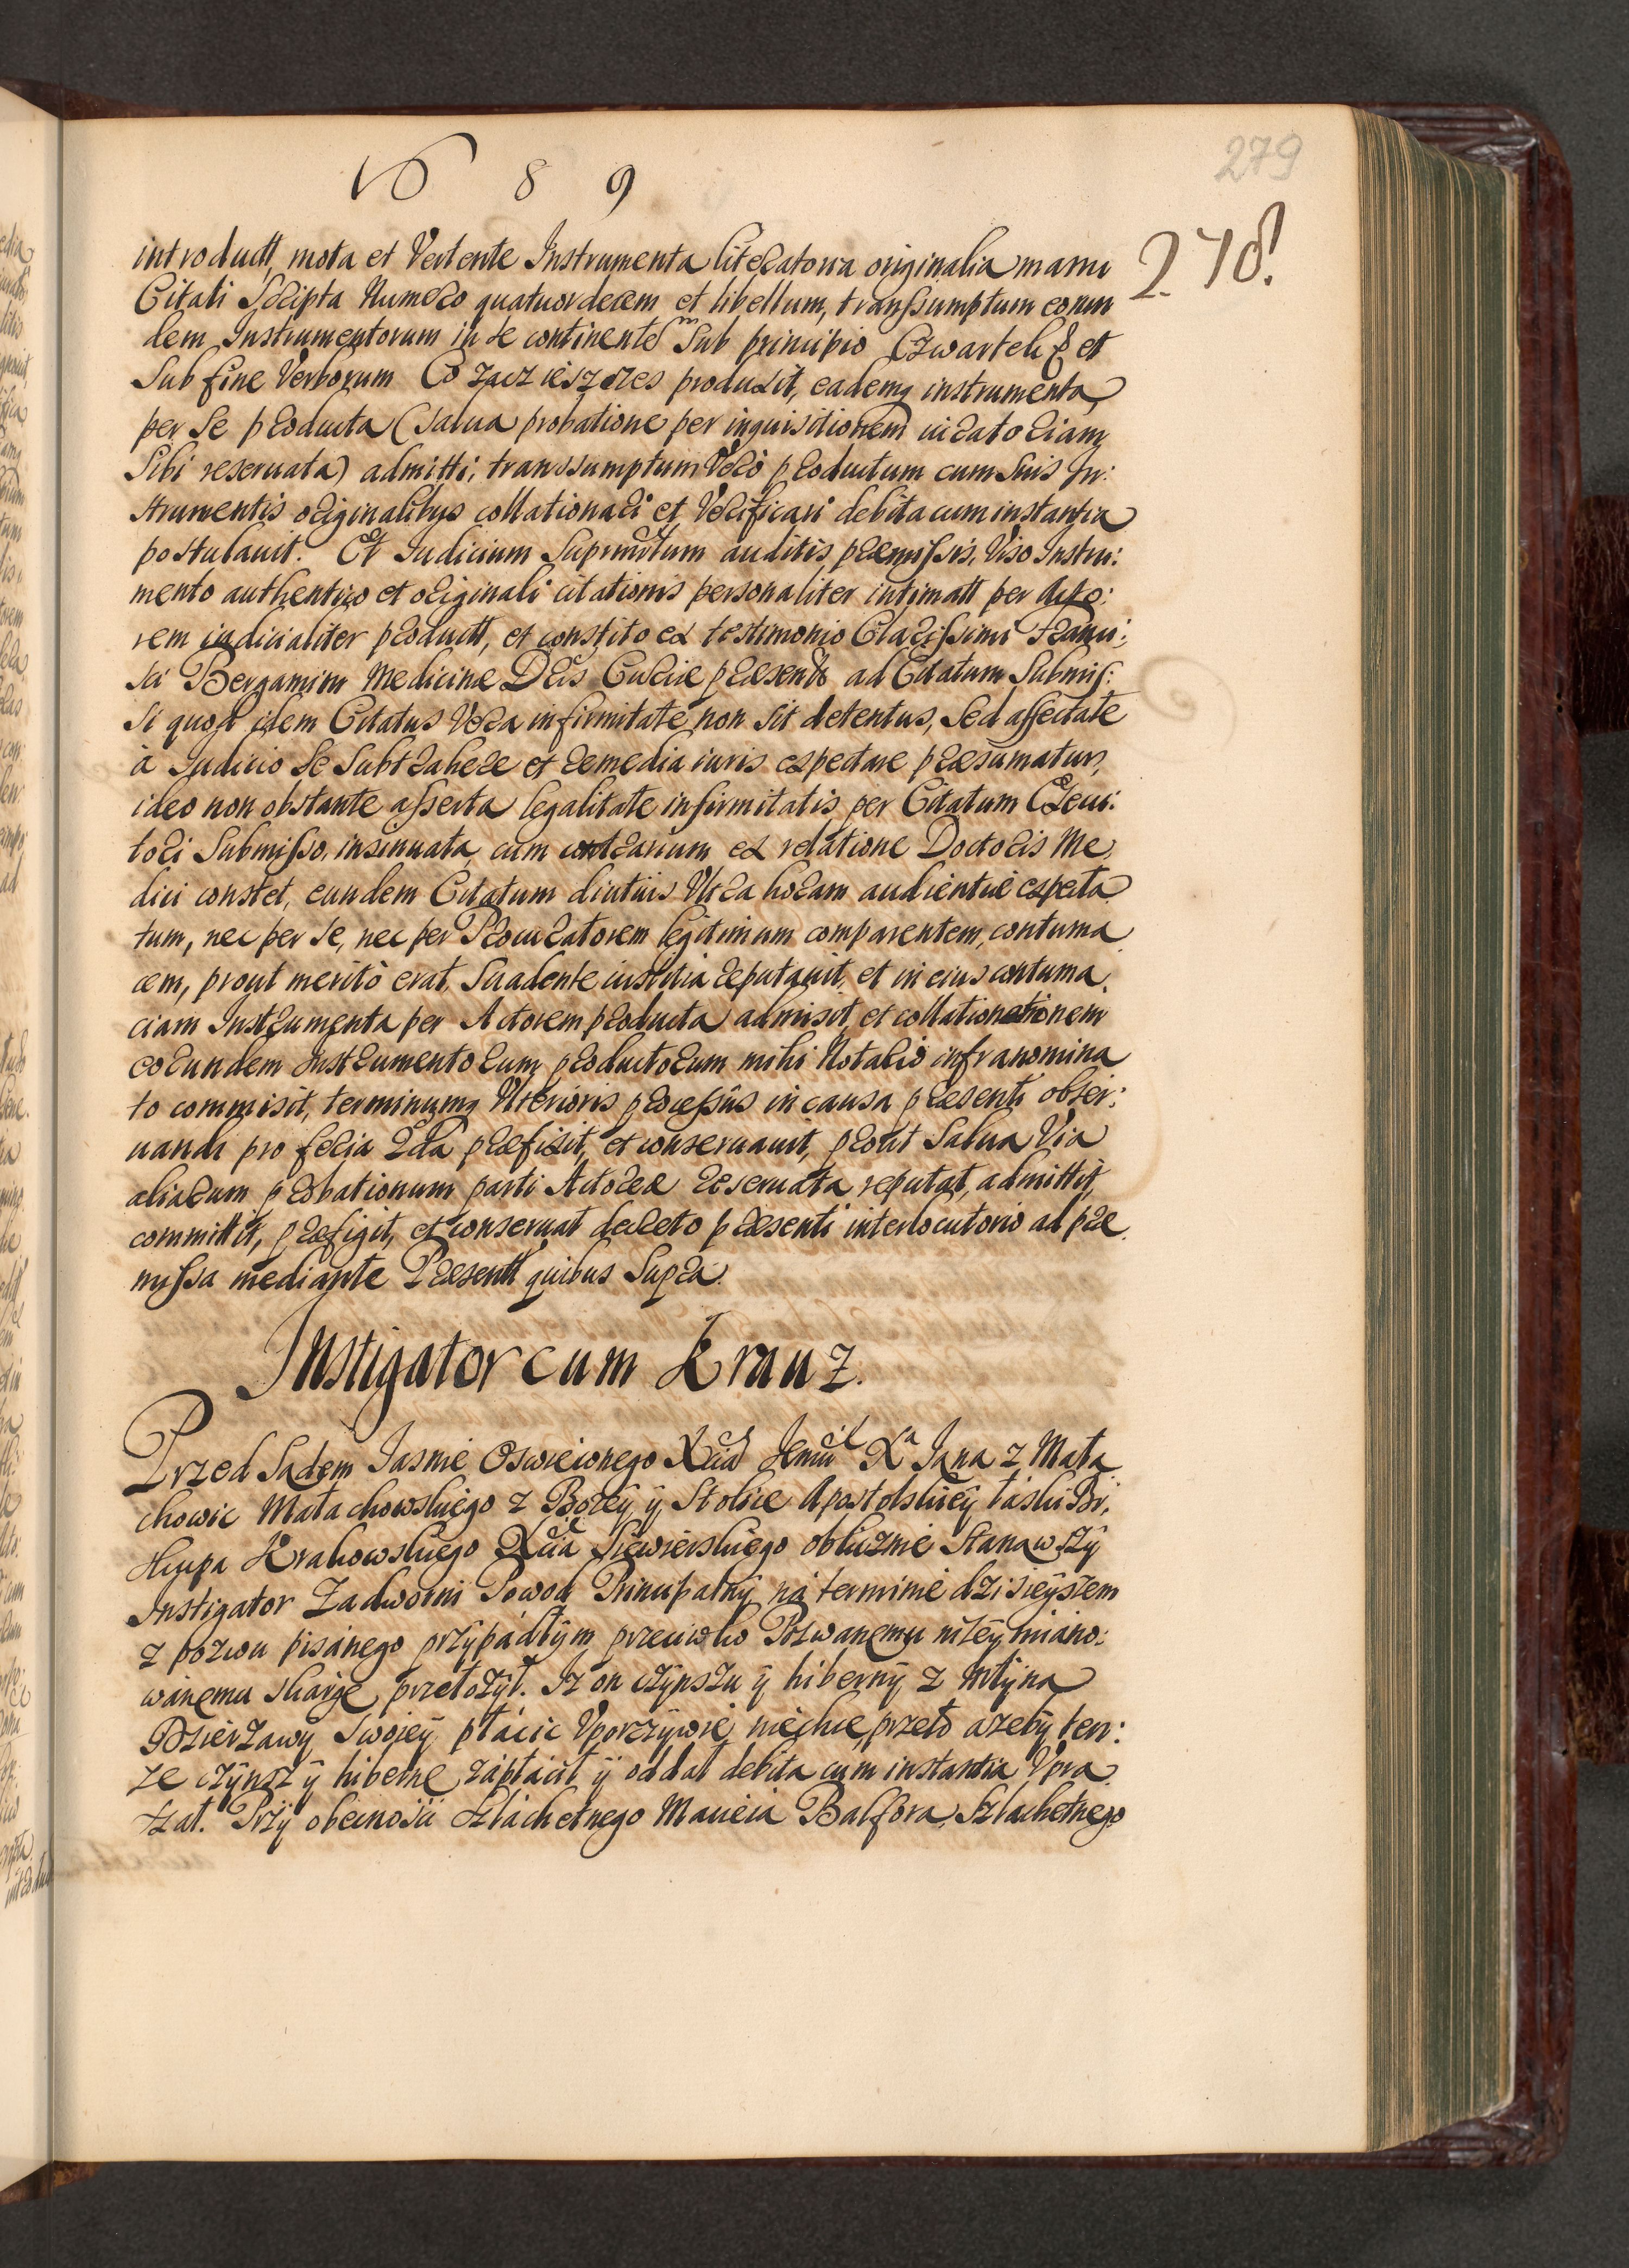 1689
279
278.
introductt, mota et Vertente Instrumenta literatoria originalia manu
Citati Scripta Numero quatuordecem et libellum, transsumptum eorun
dem Instrumentorum in se continentem Sub principio Czwartek & et
Sub fine Verborum Co zacz ieszczes produxit, eademq instrumenta,
per Se producta (salua probatione per inquisitionem iuratoriam
Sibi reseruata) admitti, transsumptum Verò productum cum Suis In:
strumentis originalibus collationari et Verificari debita cum instantia
postulauit. Et Iudicium Suprmotum auditis præmissis, Viso Instru:
mento authentico et originali citationis personaliter intimatt per Acto:
rem iudicialiter productt, et constito ex testimonio Clarissimi Franci:
sci Bergamini Medicinæ Dris Curiæ præsentt ad Citatum Submis:
si quod idem Citatus Vera infirmitate non sit detentus, Sed affectate
à Iudicio Se Subtrahere et remedia iuris expectare præsumatur,
ideo non obstante asserta legalitate infirmitatis per Citatum Execu:
tori Submisso, insinuata, cum contrarium ex relatione Doctoris Me
dici constet, eundem Citatum diutius Vltra horam audientiæ expecta
tum, nec per Se, nec per Procuratorem legitimum comparentem, contuma
cem, prout meritò erat, Suadente iustitia reputauit, et in eius contuma
ciam Instrumenta per Actorem producta admisit, et collationationem
eorundem Instrumentorum productorum mihi Notario infranomina
to commisit, terminumq Vlterioris processus in causa præsenti obser:
uandi pro feria 2da præfixit, et conseruauit, prout Salua Via
aliarum probationum parti Actoreæ reseruata reputat, admittit,
committit, præfigit, et conseruat decreto præsenti interlocutorio ad præ
missa mediante Præsentt quibus Supra.
Instigator cum Krauz.
Przed Sądem Iasnie Oswieconego Xcia Jmci Xa Iana z Mała
chowic Małachowskiego z Bozey y Stolice Apostolskiey łaski Bi,
skupa Krakowskiego Xcia Siewierskiego oblicznie Stanawszy
Instigator Zadworni Powod Principalny na terminie dzisieyszem
z pozwu pisanego przypadłym przeciwko Pozwanemu nizey miano:
wanemu skargę przełozył. Iz on czynszu y hiberny z młyna
Dzierzawy Swoiey płacic Vporczywie niechce, przeto azeby ten:
ze czynsz y hibernę zapłacił y oddał debita cum instantia Vpra
szał. Przy obecnosci szlachetnego Macieia Balfora, Szlachetnego